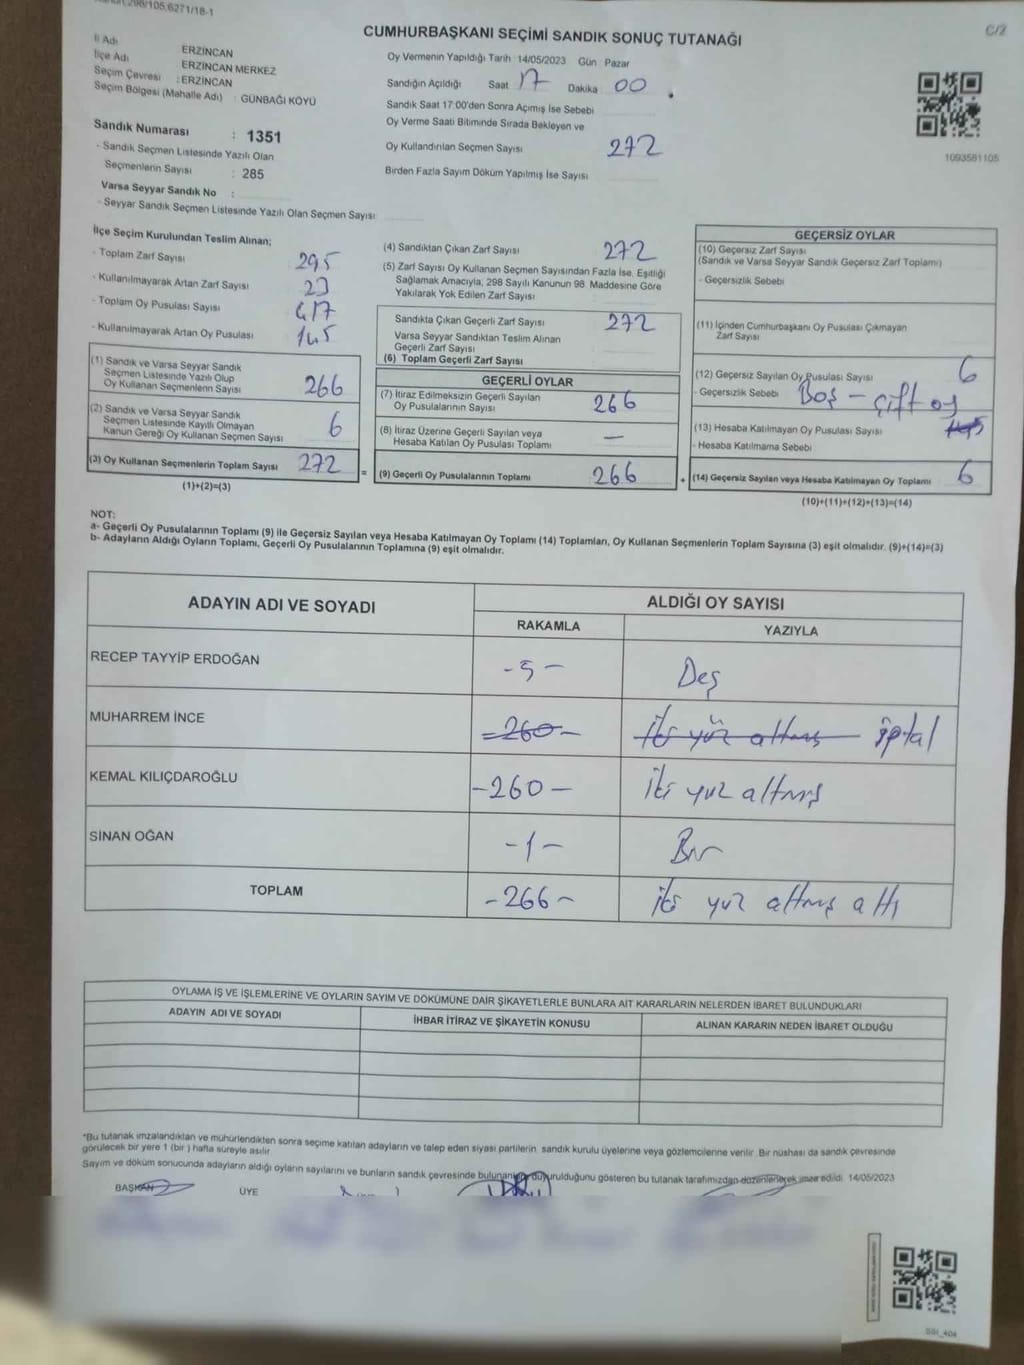 298/105,6271/18-1
C/2
CUMHURBAŞKANI SEÇİMİ SANDIK SONUÇ TUTANAĞI
İl Adı ERZİNCAN
İlçe Adı ERZİNCAN MERKEZ
Seçim Çevresi : ERZİNCAN
Seçim Bölgesi (Mahalle Adı) : GÜNBAĞI KÖYÜ
Oy Vermenin Yapıldığı Tarih 14/05/2023 Gün Pazar
Sandığın Açıldığı Saat 17 Dakika 00
Sandık Saat 17:00'den Sonra Açımış İse Sebebi
Oy Verme Saati Bitiminde Sırada Bekleyen ve
Oy Kullandırılan Seçmen Sayısı 272
Birden Fazla Sayım Döküm Yapılmış İse Sayısı
1093581105
Sandık Numarası : 1351
- Sandık Seçmen Listesinde Yazılı Olan
Seçmenlerin Sayısı : 285
Varsa Seyyar Sandık No :
- Seyyar Sandık Seçmen Listesinde Yazılı Olan Seçmen Sayısı:
İlçe Seçim Kurulundan Teslim Alınan;
- Toplam Zarf Sayısı 295
- Kullanılmayarak Artan Zarf Sayısı 23
- Toplam Oy Pusulası Sayısı 417
- Kullanılmayarak Artan Oy Pusulası 145
(1) Sandık ve Varsa Seyyar Sandık
Seçmen Listesinde Yazılı Olup
Oy Kullanan Seçmenlerin Sayısı 266
(2) Sandık ve Varsa Seyyar Sandık
Seçmen Listesinde Kayıtlı Olmayan
Kanun Gereği Oy Kullanan Seçmen Sayısı 6
(3) Oy Kullanan Seçmenlerin Toplam Sayısı 272
(1)+(2)=(3)
(4) Sandıktan Çıkan Zarf Sayısı 272
(5) Zarf Sayısı Oy Kullanan Seçmen Sayısından Fazla İse, Eşitliği
Sağlamak Amacıyla, 298 Sayılı Kanunun 98. Maddesine Göre
Yakılarak Yok Edilen Zarf Sayısı
Sandıkta Çıkan Geçerli Zarf Sayısı 272
Varsa Seyyar Sandıktan Teslim Alınan
Geçerli Zarf Sayısı
(6) Toplam Geçerli Zarf Sayısı
GEÇERLİ OYLAR
(7) İtiraz Edilmeksizin Geçerli Sayılan
Oy Pusulalarının Sayısı 266
(8) İtiraz Üzerine Geçerli Sayılan veya
Hesaba Katılan Oy Pusulası Toplamı —
= (9) Geçerli Oy Pusulalarının Toplamı 266
GEÇERSİZ OYLAR
(10) Geçersiz Zarf Sayısı
(Sandık ve Varsa Seyyar Sandık Geçersiz Zarf Toplamı)
- Geçersizlik Sebebi
(11) İçinden Cumhurbaşkanı Oy Pusulası Çıkmayan
Zarf Sayısı
(12) Geçersiz Sayılan Oy Pusulası Sayısı 6
- Geçersizlik Sebebi Boş - çift oy
(13) Hesaba Katılmayan Oy Pusulası Sayısı
- Hesaba Katılmama Sebebi
+ (14) Geçersiz Sayılan veya Hesaba Katılmayan Oy Toplamı 6
(10)+(11)+(12)+(13)=(14)
NOT:
a- Geçerli Oy Pusulalarının Toplamı (9) ile Geçersiz Sayılan veya Hesaba Katılmayan Oy Toplamı (14) Toplamları, Oy Kullanan Seçmenlerin Toplam Sayısına (3) eşit olmalıdır. (9)+(14)=(3)
b- Adayların Aldığı Oyların Toplamı, Geçerli Oy Pusulalarının Toplamına (9) eşit olmalıdır.
ADAYIN ADI VE SOYADI ALDIĞI OY SAYISI
RAKAMLA YAZIYLA
RECEP TAYYİP ERDOĞAN -5- Beş
MUHARREM İNCE -260- iki yüz altmış iptal
KEMAL KILIÇDAROĞLU -260- iki yüz altmış
SİNAN OĞAN -1- Bir
TOPLAM -266- iki yüz altmış altı
OYLAMA İŞ VE İŞLEMLERİNE VE OYLARIN SAYIM VE DÖKÜMÜNE DAİR ŞİKAYETLERLE BUNLARA AİT KARARLARIN NELERDEN İBARET BULUNDUKLARI
ADAYIN ADI VE SOYADI İHBAR İTİRAZ VE ŞİKAYETİN KONUSU ALINAN KARARIN NEDEN İBARET OLDUĞU
*Bu tutanak imzalandıktan ve mühürlendikten sonra seçime katılan adayların ve talep eden siyasi partilerin, sandık kurulu üyelerine veya gözlemcilerine verilir. Bir nüshası da sandık çevresinde
görülecek bir yere 1 (bir) hafta süreyle asılır.
Sayım ve döküm sonucunda adayların aldığı oyların sayılarını ve bunların sandık çevresinde duyurulduğunu gösteren bu tutanak tarafımızdan düzenlenerek imza edildi. 14/05/2023
BAŞKAN ÜYE